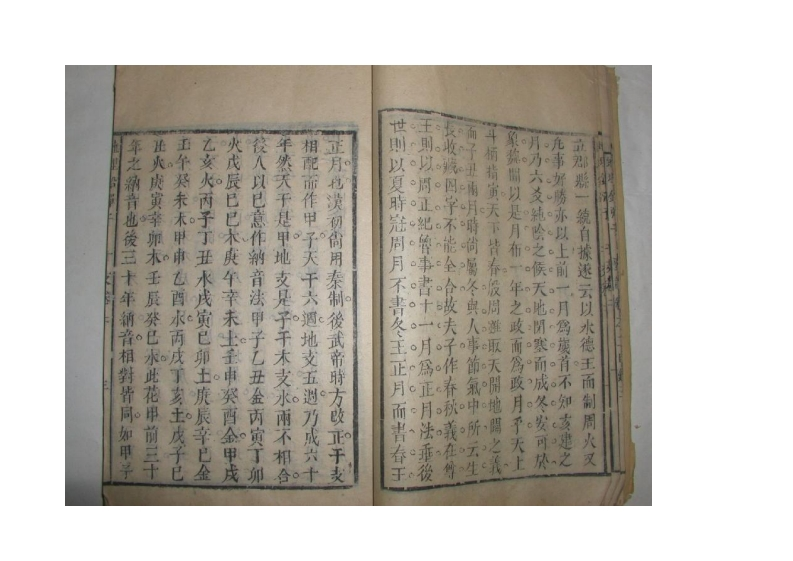 立郡縣一統自據遂云以水德王而制周火又
凡事好勝亦以上前一月為歲首不知亥建之
月乃六爻純陰之候天地閉塞而成冬安可於
象雖閉以是月布一年之政而為歲月乎天上
斗柄指寅天下皆春殷周雖取天開地闢之義
而子丑兩月時尚屬冬與人事節氣中所云生
長收藏四字不能全合故夫子作春秋義在尊
王則以周正紀魯事書十一月為正月法垂後
世則以夏時冠周月不書冬王正月而書春王
正月也漢初尚用秦制後武帝時方改正干支
相配而作甲子天干六週地支五週乃成六十
年然天干是甲地支是子干木支水兩不相合
後人以己意作納音法甲子乙丑金丙寅丁卯
火戊辰己巳木庚午辛未土壬申癸酉金甲戌
乙亥火丙子丁丑水戊寅己卯土庚辰辛巳金
壬午癸未木甲申乙酉水丙戌丁亥土戊子己
丑火庚寅辛卯木壬辰癸巳水此花甲前三十
年之納音也後三十年納音相對皆同如甲子